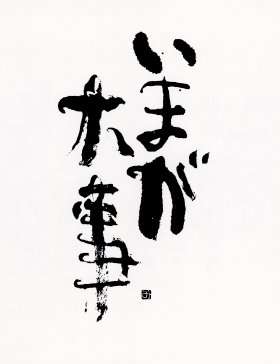 いまが
大事